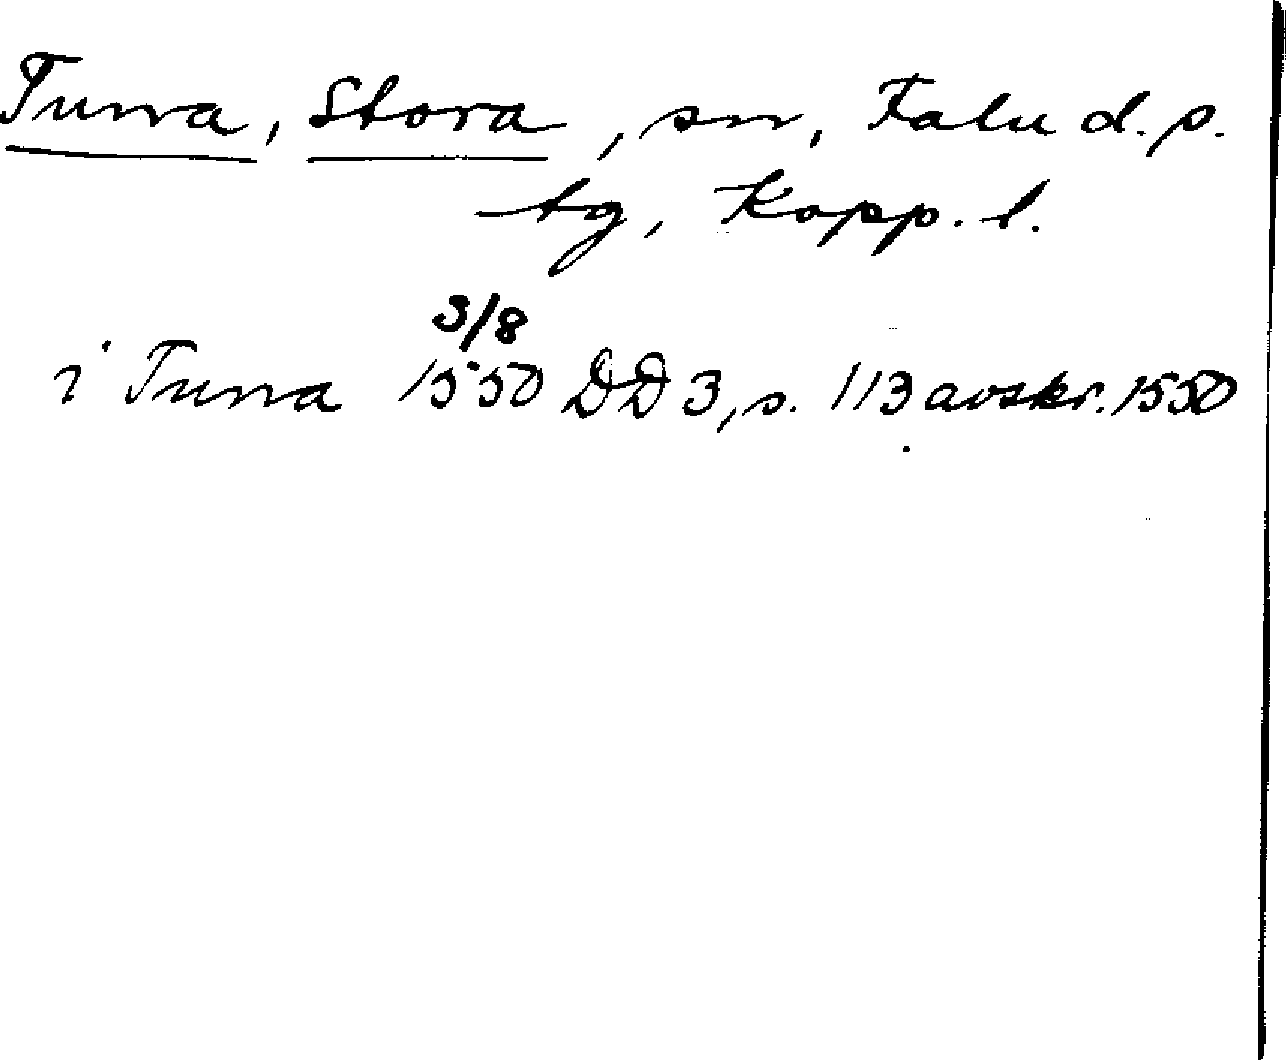 Tuna, Stora, sn, Falu d.s.
tg, Kopp. l.
3/8
i Tuna 1550 DD 3, s. 113 avskr. 1550